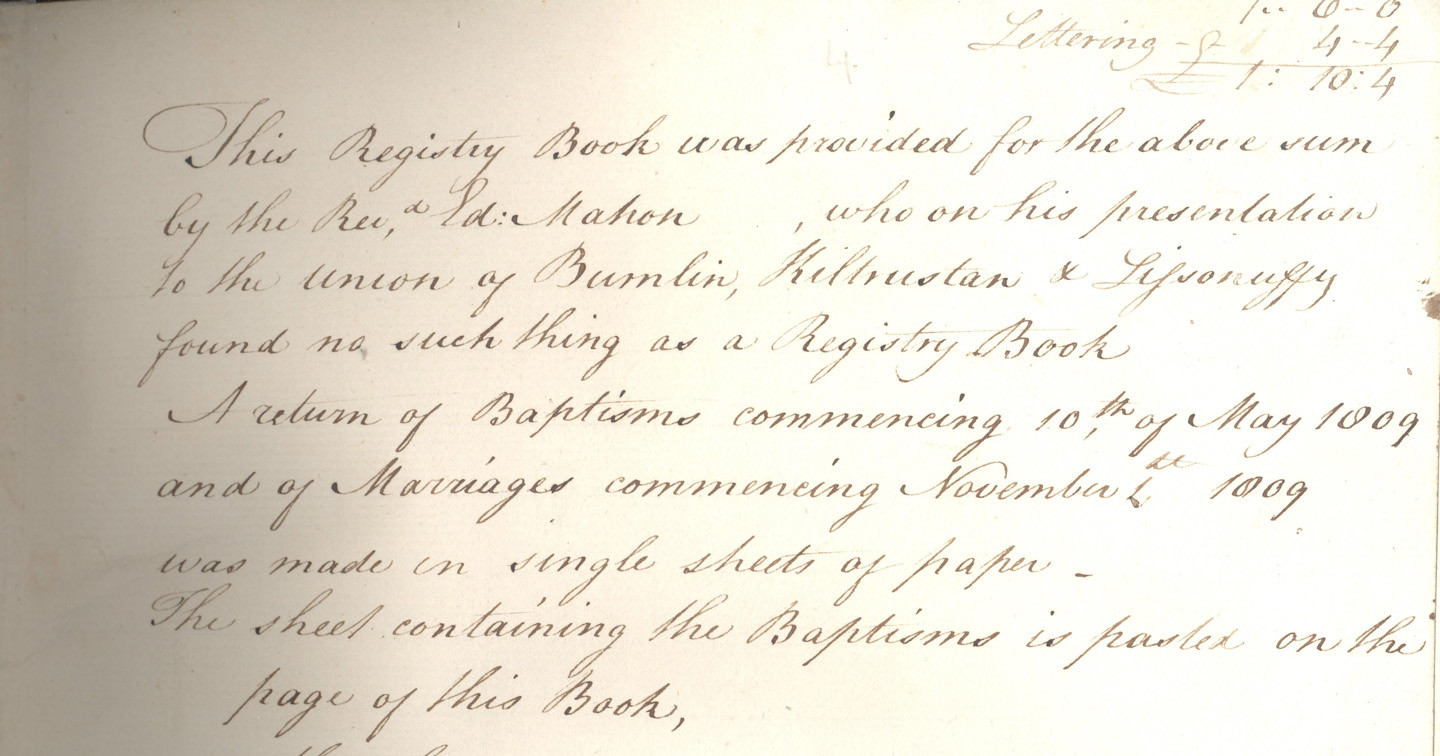 1 .. 6 .. 0
Lettering - 4 -- 4
£ 1 : 10 : 4
This Registry Book was provided for the above sum
by the Revd Ed: Mahon , who on his presentation
to the union of Bumlin, Kiltrustan & Lissonuffy
found no such thing as a Registry Book
A return of Baptisms commencing 10th of May 1809
and of Marriages commencing November 1st 1809
was made in single sheets of paper -
The sheet containing the Baptisms is pasted on the
page of this Book,